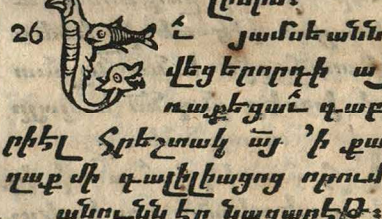 26 Եւ յամսեանն
վեցերորդի ա
ռաքեցաւ գաբ
րիէլ հրեշտակ այ 'ի քա
ղաք մի գալիլիացոց որում
անունն էր նազարեթ: